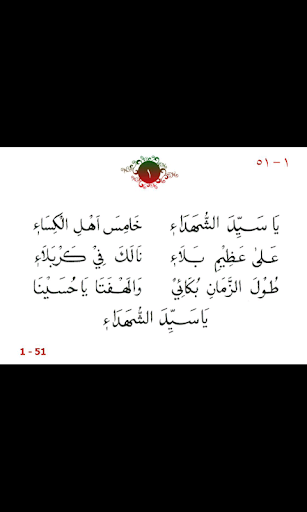 ١ - ٥١
١
يَا سَيِّدَ الشُّهَدَاءِ خَامِسَ اَهْلِ الْكِسَاءِ
عَلىٰ عَظِيْمِ بَلَاءٍ نَالَكَ فِيْ كَرْبَلَاءِ
طُوْلَ الزَّمَانِ بُكَائِيْ وَالَهْفَتَا يَا حُسَيْنَا
يَا سَيِّدَ الشُّهَدَاءِ
1 - 51